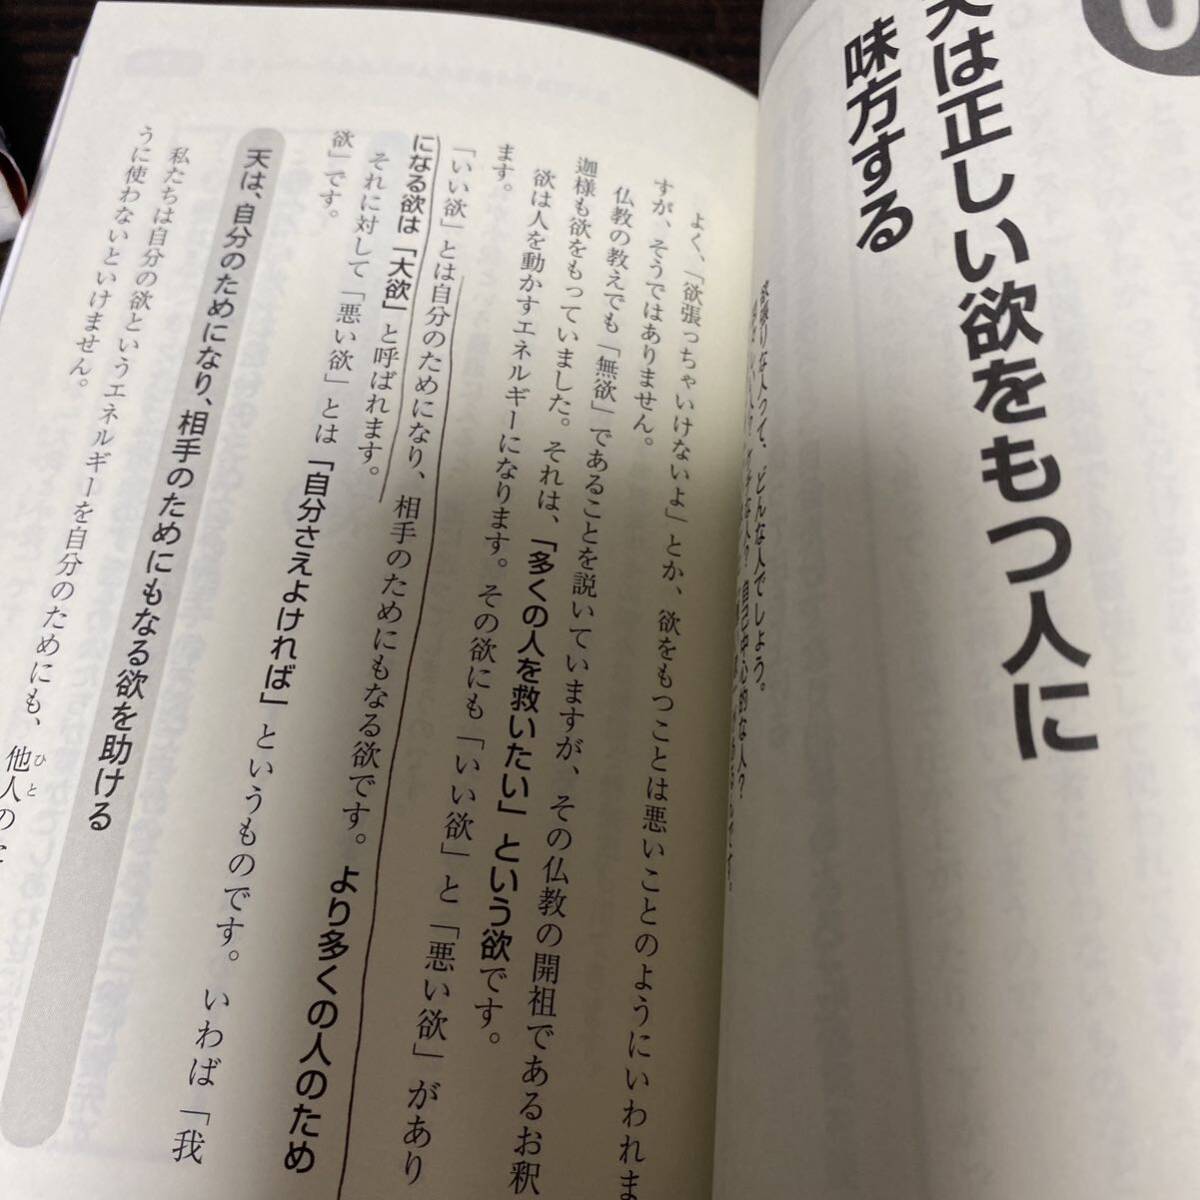 天は正しい欲をもつ人に
味方する
欲張りな人って、どんな人でしょう。
自己中心的な人？
よく、「欲張っちゃいけないよ」とか、欲をもつことは悪いことのようにいわれま
すが、そうではありません。
仏教の教えでも「無欲」であることを説いていますが、その仏教の開祖であるお釈
迦様も欲をもっていました。それは、「多くの人を救いたい」という欲です。
欲は人を動かすエネルギーになります。その欲にも「いい欲」と「悪い欲」があり
ます。
「いい欲」とは自分のためになり、相手のためにもなる欲です。より多くの人のため
になる欲は「大欲」と呼ばれます。
それに対して「悪い欲」とは「自分さえよければ」というものです。いわば「我
欲」です。
天は、自分のためになり、相手のためにもなる欲を助ける
私たちは自分の欲というエネルギーを自分のためにも、他人の
ひと
うに使わないといけません。